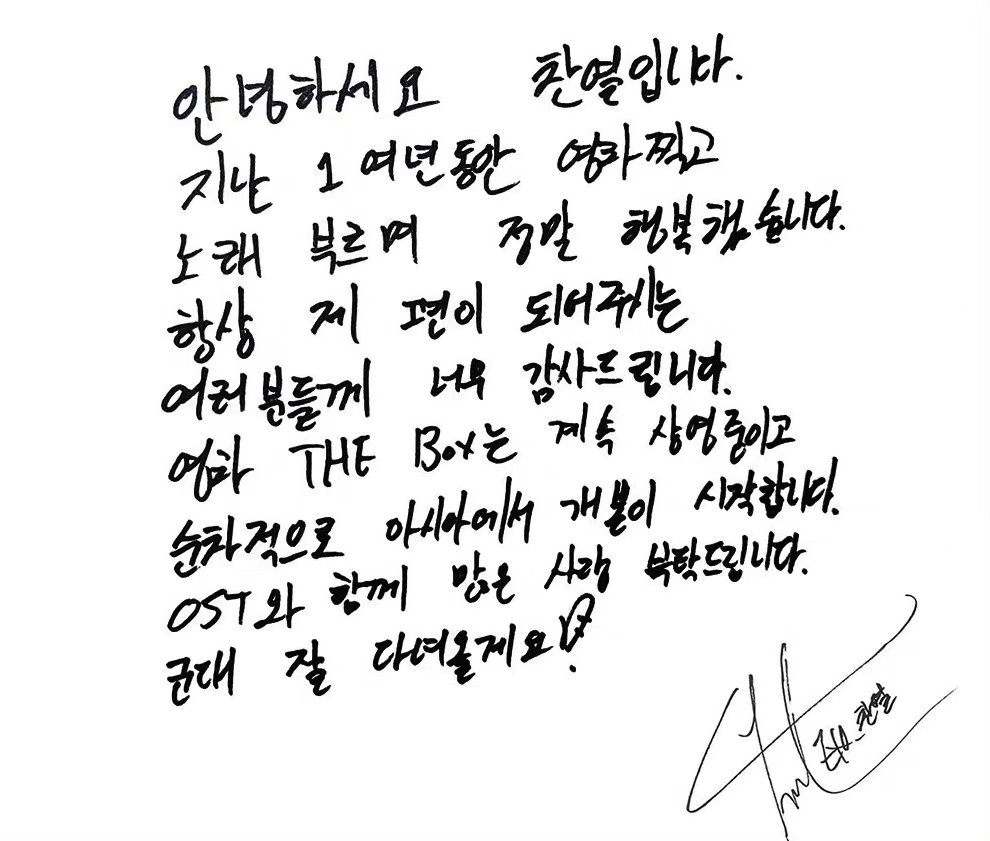 안녕하세요 찬열입니다.
지난 1여년동안 영화찍고
노래 부르며 정말 행복했습니다.
항상 제 편이 되어주시는
여러분들께 너무 감사드립니다.
영화 THE Box는 계속 상영중이고
순차적으로 아시아에서 개봉이 시작합니다.
OST와 함께 많은 사랑 부탁드립니다.
군대 잘 다녀올게요♡.
EXO_찬열